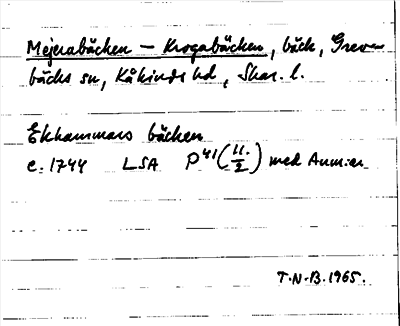 Mejerabäcken – Krogabäcken, bäck, Grev-
bäcks sn, Kåkinds hd, Skar. l.
Ekhammars bäcken
c. 1744 LSA P41 (11./2) med Anm:er
T.N.B. 1965.